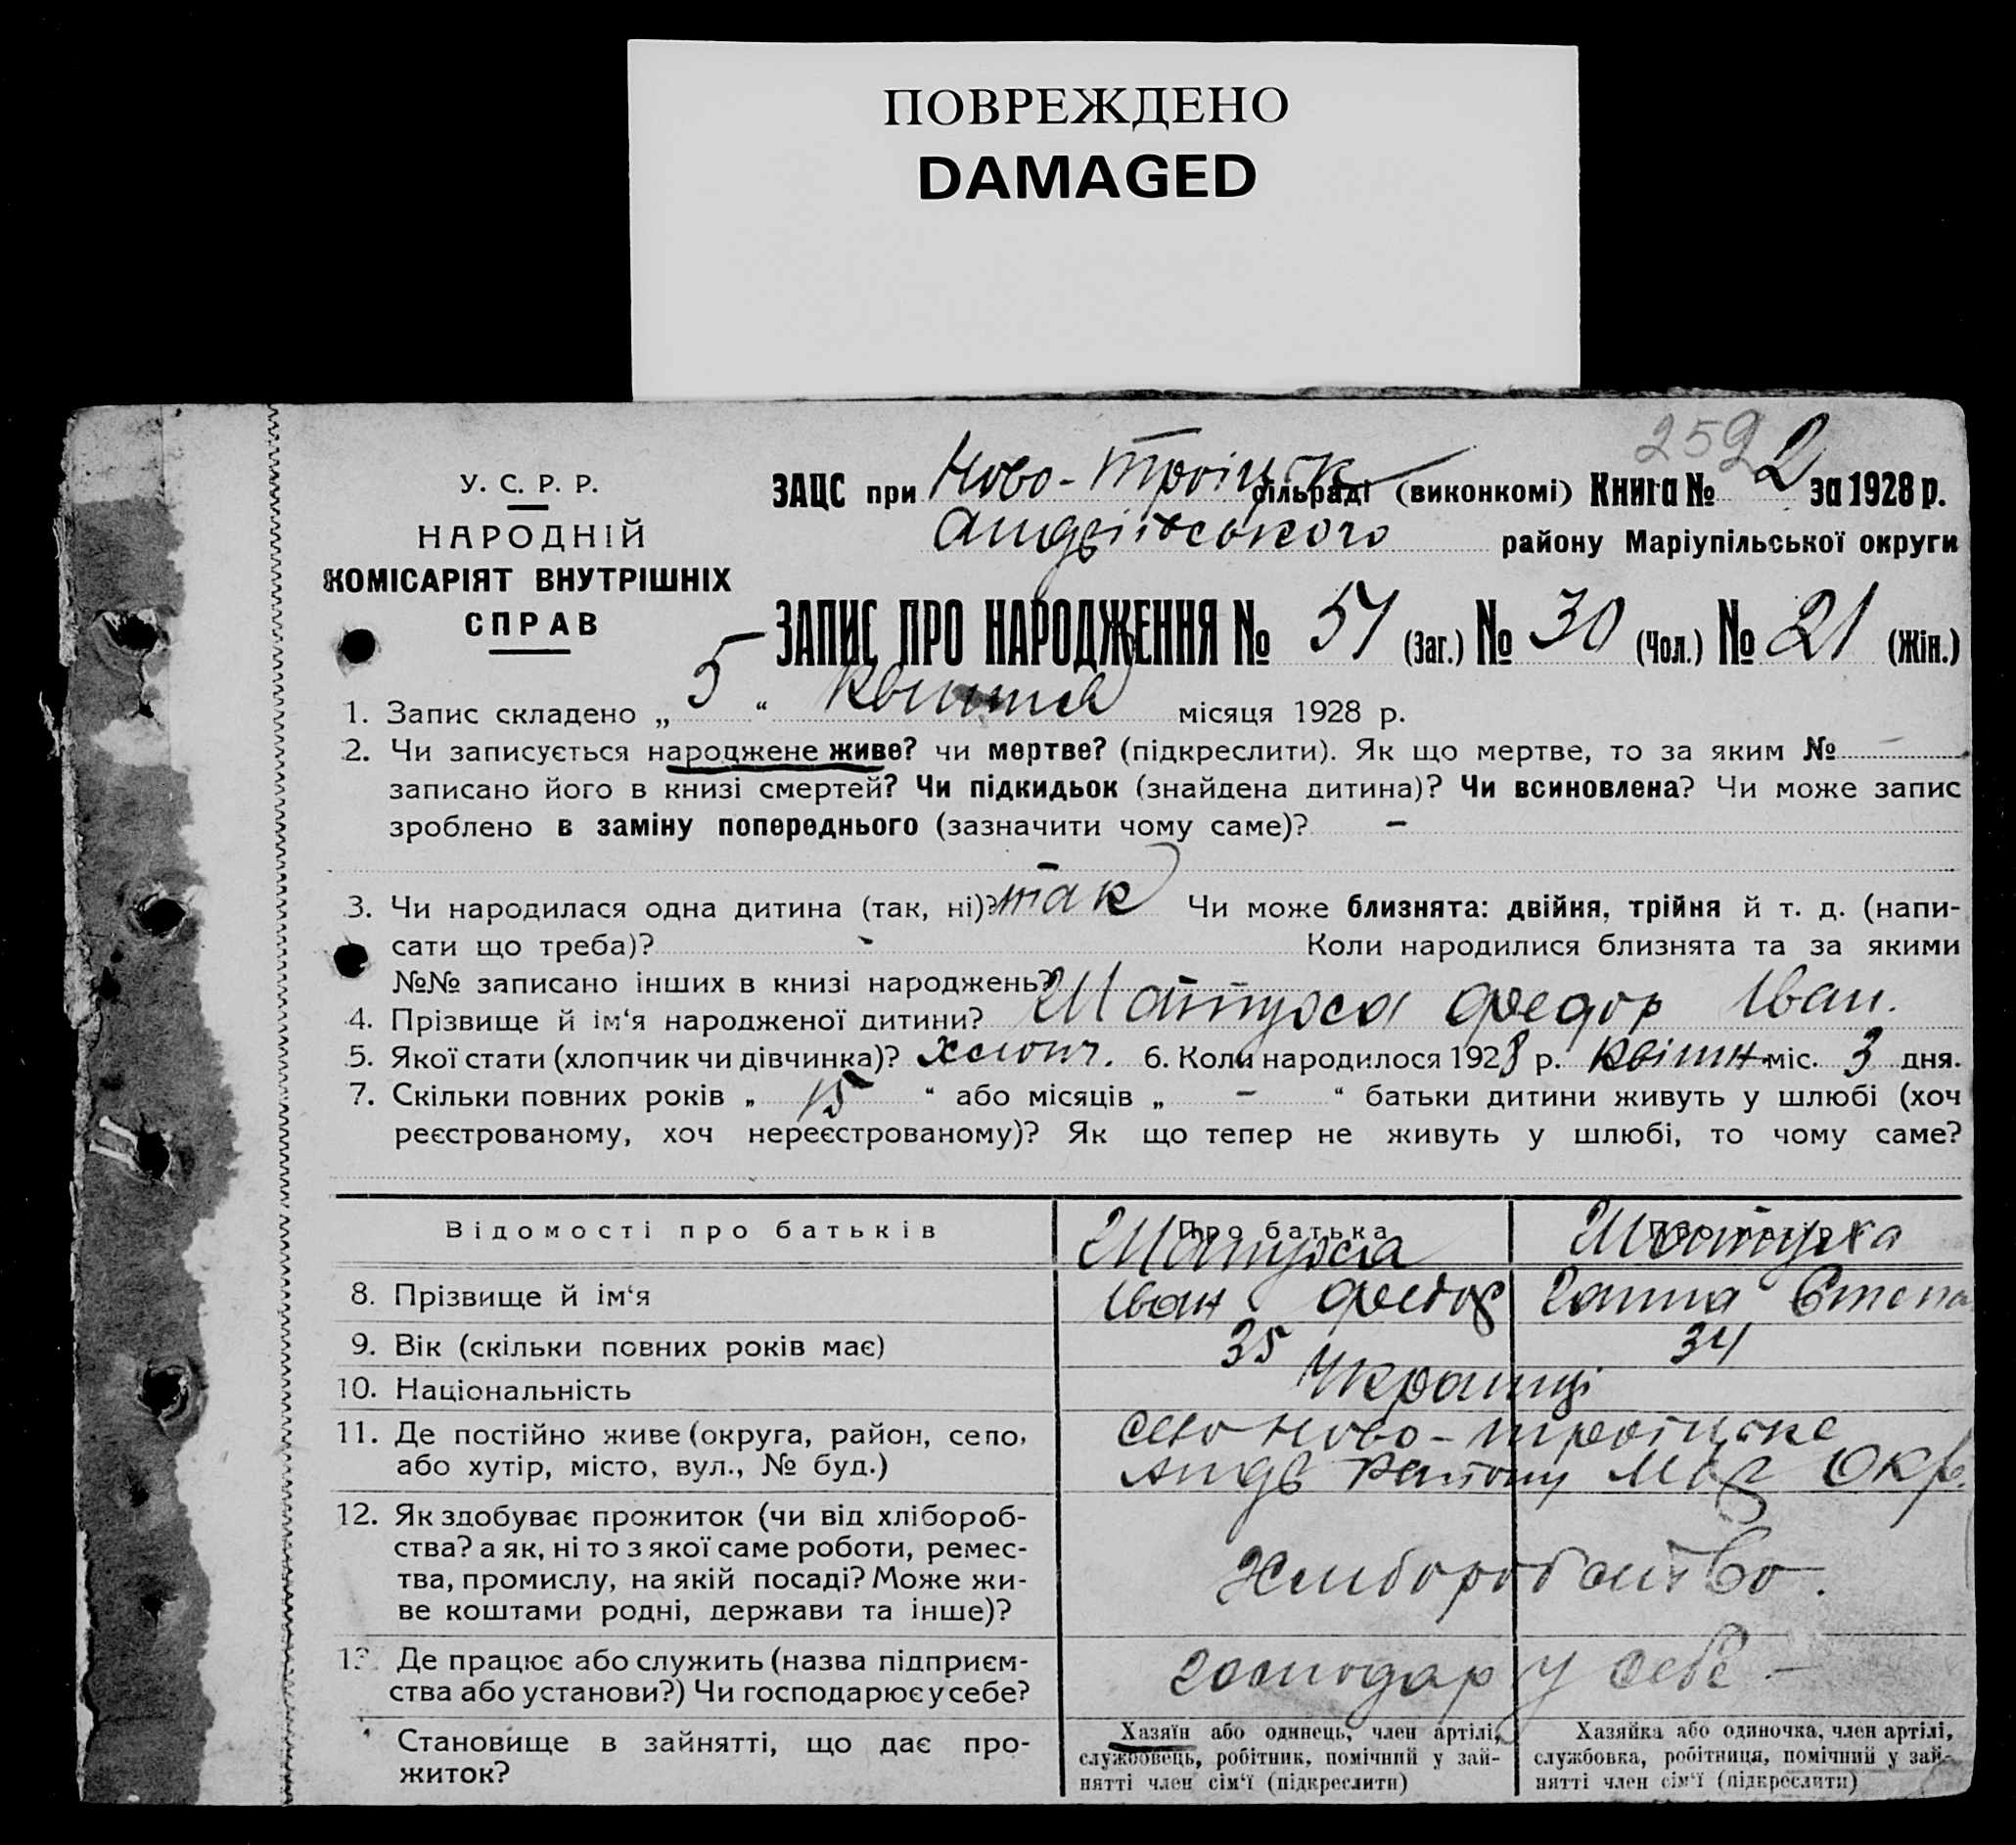 ПОВРЕЖДЕНО
DAMAGED
2592
У. С. Р. Р.
НАРОДНІЙ
КОМІСАРІЯТ ВНУТРІШНІХ
СПРАВ
ЗАЦС при Ново-Троіцьк сільраді (виконкомі) Книга № 2 за 1928 р.
Андріївського району Маріупільської округи
ЗАПИС ПРО НАРОДЖЕННЯ № 51 (Заг.) № 30 (Чол.) № 21 (Жін.)
1. Запис складено „ 5 “ квітня місяця 1928 р.
2. Чи записується народжене живе? чи мертве? (підкреслити). Як що мертве, то за яким № —
записано його в книзі смертей? Чи підкидьок (знайдена дитина)? Чи всиновлена? Чи може запис
зроблено в заміну попереднього (зазначити чому саме)? —
3. Чи народилася одна дитина (так, ні)? так Чи може близнята: двійня, трійня й т. д. (напи-
сати що треба)? - Коли народилися близнята та за якими
№№ записано інших в книзі народжень?
4. Прізвище й ім‘я народженої дитини? Федор Іван.
5. Якої стати (хлопчик чи дівчинка)? хлопч. 6. Коли народилося 1928 р. квітн. міс. 3 дня.
7. Скільки повних років „ 15 “ або місяців „ — “ батьки дитини живуть у шлюбі (хоч
реєстрованому, хоч нереєстрованому)? Як що тепер не живуть у шлюбі, то чому саме?
Відомості про батьків Про батька
8. Прізвище й ім‘я Іван Федор Ганна Степа
9. Вік (скільки повних років має) 35 34
10. Національність Украінці
11. Де постійно живе (округа, район, село, село Ново-Троіцьке
або хутір, місто, вул., № буд.) Андр району Мар Окр.
12. Як здобуває прожиток (чи від хлібороб-
ства? а як, ні то з якої саме роботи, ремес-
тва, промислу, на якій посаді? Може жи-
ве коштами родні, держави та інше)? Хлиборобство.
13. Де працює або служить (назва підприєм-
ства або установи?) Чи господарює у себе? господар у себе —
Становище в зайнятті, що дає про-
житок?
Хазяїн або одинець, член артілі,
службовець, робітник, помічний у зай-
нятті член сім‘ї (підкреслити)
Хазяйка або одиночка, член артілі,
службовка, робітниця, помічний у зай-
нятті член сім‘ї (підкреслити)